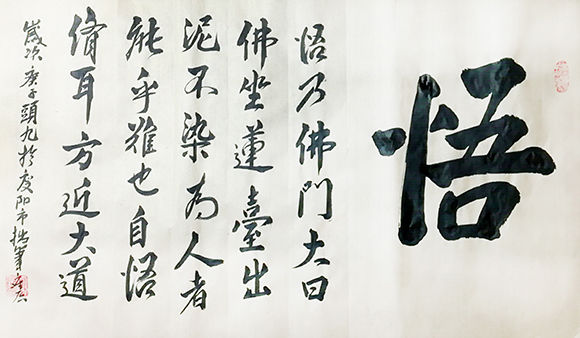 悟
悟乃佛門大曰
佛坐蓮臺出
泥不染為人者
能乎難也自悟
脩耳方近大道
歲次庚子頭九於慶阳市拙筆